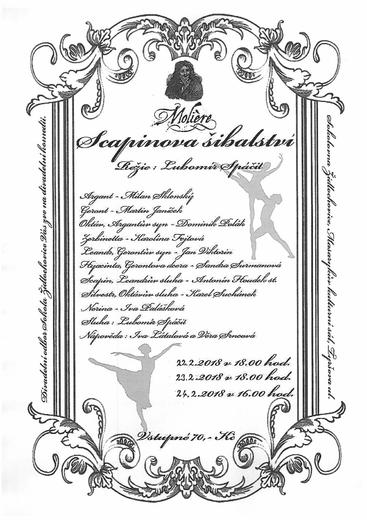 Molière
Scapinova šibalství
Režie : Lubomír Spáčil
Argant - Milan Sklenský
Geront - Martin Janíček
Oktáv, Argantův syn - Dominik Polák
Zerbinetta - Karolína Fojtová
Leandr, Gerontův syn - Jan Viktorin
Hyacinta, Gerontova dcera - Sandra Surmanová
Scapin, Leandrův sluha - Antonín Houdek st.
Silvestr, Oktávův sluha - Karel Suchánek
Nerina - Iva
Sluha : Lubomír Spáčil
Nápověda : Iva Látalová a Věra Srncová
22.2.2018 v 18.00 hod.
23.2.2018 v 18.00 hod.
24.2.2018 v 16.00 hod.
Vstupné 70,- Kč
Divadelní odbor Sokola Židlochovice Vás zve na divadelní komedii.
Sokolovna Židlochovice, Masarykův kulturní sál, Tyršova ul.